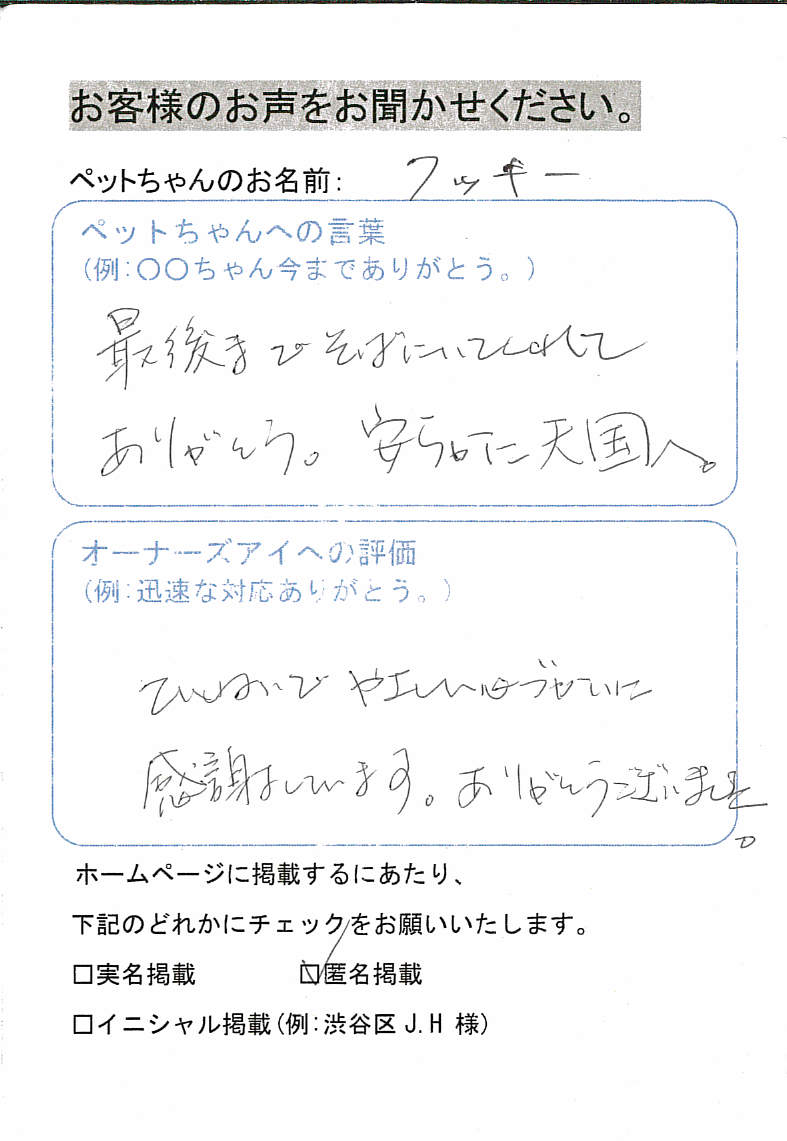 お客様のお声をお聞かせください。
ペットちゃんのお名前: クッキー
ペットちゃんへの言葉
(例:〇〇ちゃん今までありがとう。)
最後までそばにいてくれて
ありがとう。安らかに天国へ。
オーナーズアイへの評価
(例:迅速な対応ありがとう。)
ていねいで やさしい心づかいに
感謝しています。ありがとうございました。
ホームページに掲載するにあたり、
下記のどれかにチェックをお願いいたします。
□実名掲載 ☑匿名掲載
□イニシャル掲載(例:渋谷区 J.H 様)